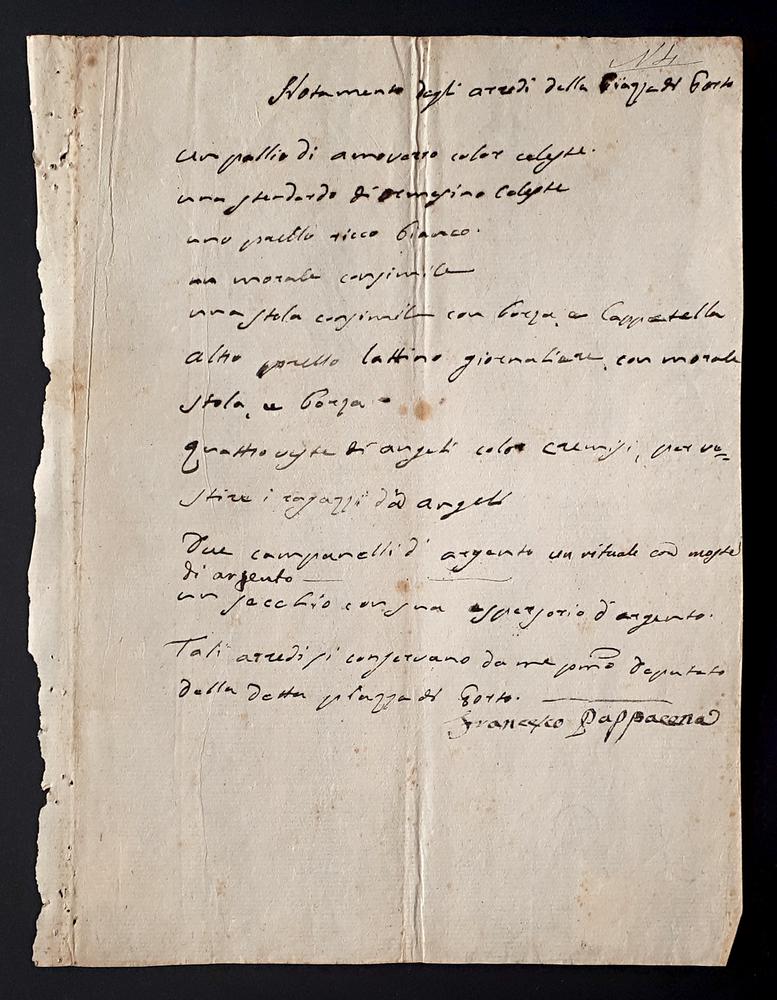 N 4
Notamento degli arredi della Piazza di Porto
un pallio di amoverro color celeste.
uno stendardo di ormesino Celeste
uno piretto ricco bianco.
un morale consimile
una stola consimile con borza, e Cappetella
altro piretto lattino giornaliere, con morale
stola, e borza
quattro veste di angeli color cremisi, per ve=
stire i ragazzi da angeli
Due campanelli d'argento un rituale con
di argento
un secchio con sua aspersorio d'argento.
Tali arredi si conservano da me pmo Deputato
della detta piazza di Porto.
Francesco Pappacena